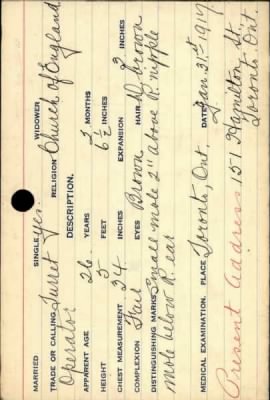 MARRIED SINGLE yes. WIDOWER
TRADE OR CALLING Turret RELIGION Church of England
Operator DESCRIPTION.
APPARENT AGE 26 YEARS 3 MONTHS
HEIGHT 5 FEET 6½ INCHES
CHEST MEASUREMENT 34 INCHES EXPANSION 3 INCHES
COMPLEXION Fair EYES Brown HAIR D. brown
DISTINGUISHING MARKS Small mole 2" above R. nipple
Mole below R. ear
MEDICAL EXAMINATION. PLACE Toronto, Ont. DATE Jan. 31st 1917
Present Address 157 Hamilton St.,
Toronto. Ont.